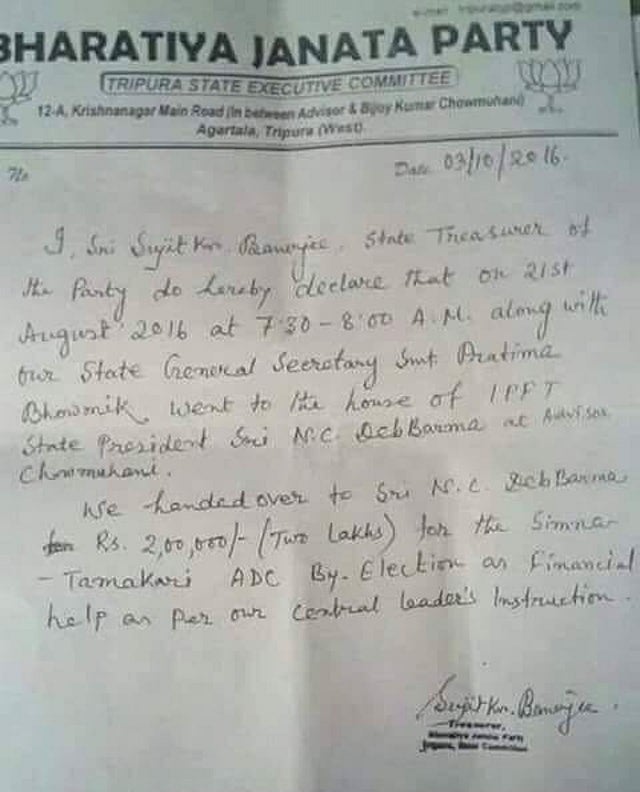 BHARATIYA JANATA PARTY
TRIPURA STATE EXECUTIVE COMMITTEE
12-A, Krishnanagar Main Road (In between Advisor & Bijoy Kumar Chowmuhani)
Agartala, Tripura (West)
Date 03/10/2016.
I, Sri Sujit Kr. Banerjee, State Treasurer of
the Party do hereby declare that on 21st
August 2016 at 7:30 - 8:00 A.M. along with
our State General Secretary Smt. Pratima
Bhowmik, went to the house of IPFT
State President Sri N.C. DebBarma at Advisor
Chowmuhani.
We handed over to Sri N.C. DebBarma
Rs. 2,00,000/- (Two Lakhs) for the Simna
- Tamakari ADC By-Election as Financial
help as per our Central leader's Instruction.
Sujit Kr. Banerjee.
Treasurer,
Bharatiya Janata Party
Tripura, State Committee